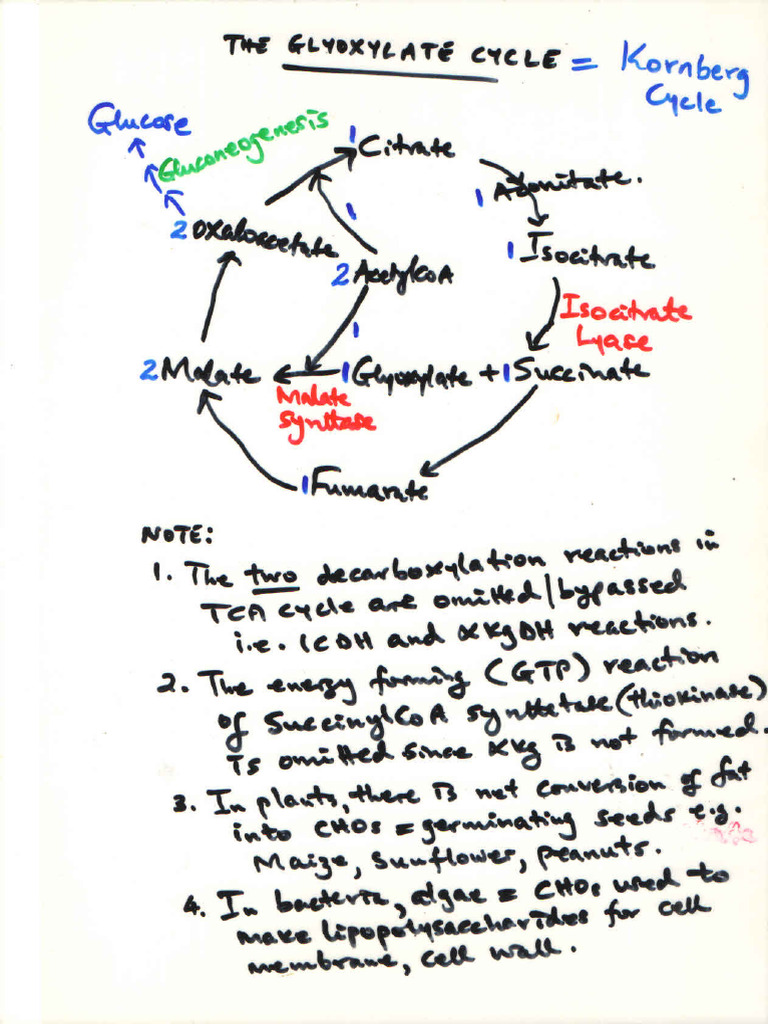 THE GLYOXYLATE CYCLE = Kornberg Cycle
Glucose
Gluconeogenesis
1 Citrate
1 Aconitate.
1 Isocitrate
Isocitrate
Lyase
2 Oxaloacetate
1
2 AcetylCoA
1
2 Malate
1 Glyoxylate + 1 Succinate
Malate
synthase
1 Fumarate
NOTE:
1. The two decarboxylation reactions in
TCA cycle are omitted/bypassed
i.e. ICDH and αKgDH reactions.
2. The energy forming (GTP) reaction
of SuccinylCoA synthetase (thiokinase)
is omitted since αKg is not formed.
3. In plants, there is net conversion of fat
into CHOs = germinating seeds e.g.
Maize, sunflower, peanuts.
4. In bacteria, algae = CHOs used to
make lipopolysaccharides for cell
membrane, cell wall.